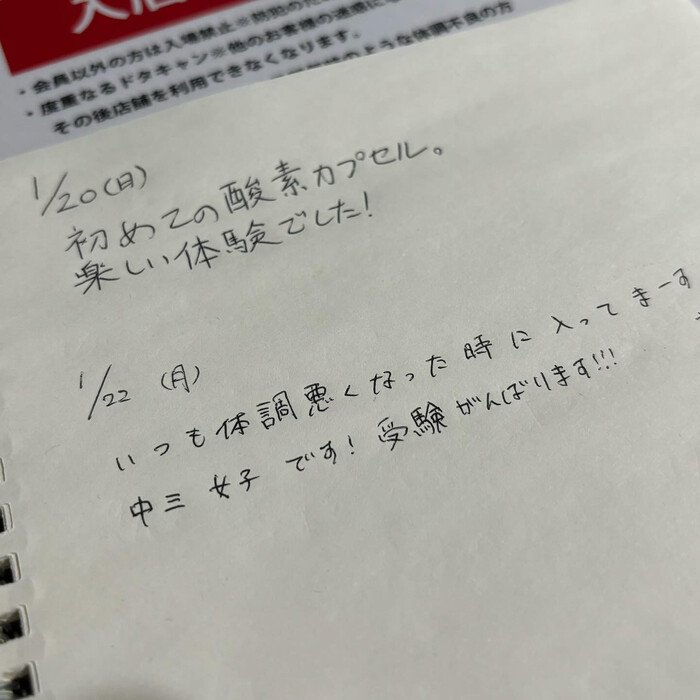 ・会員以外の方は入場禁止※防犯のた
・度重なるドタキャン※他のお客様の迷惑に
その後店舗を利用できなくなります。
のような体調不良の方
1/20(日)
初めての酸素カプセル。
楽しい体験でした!
1/22 (月)
いつも体調悪くなった時に入ってまーす
中三女子です! 受験がんばります!!!